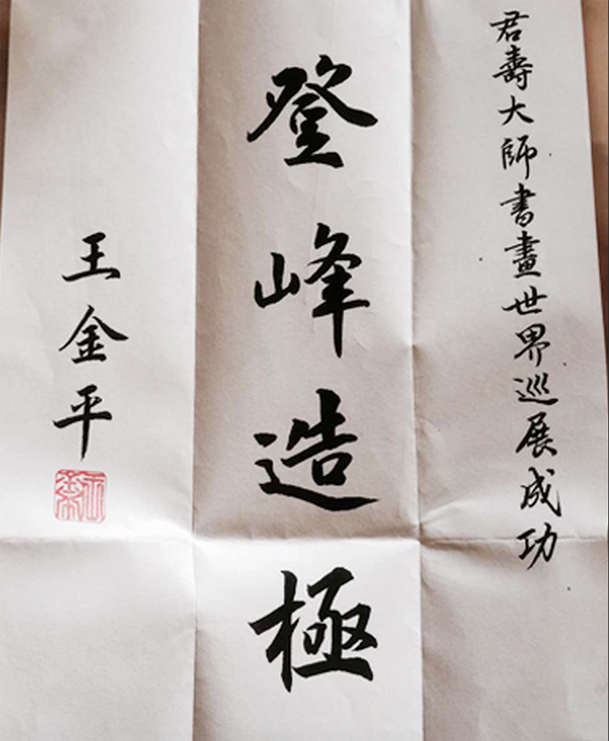 君壽大師書畫世界巡展成功
登峰造極
王金平